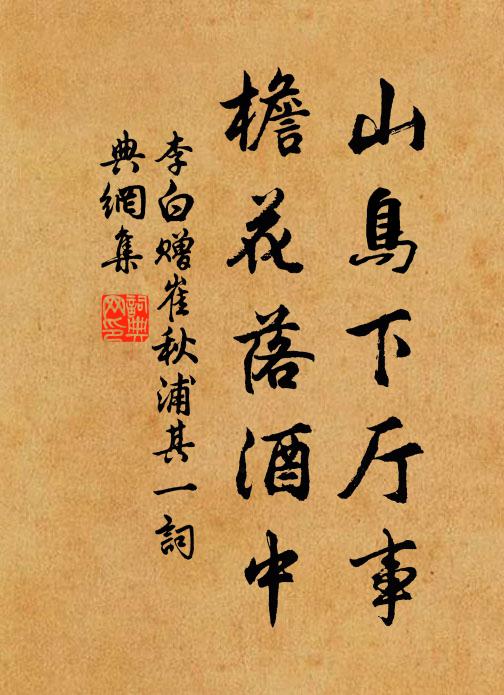 山鳥下厅事
檐花落酒中
李白赠崔秋浦其一詞
典網集
詞典网印